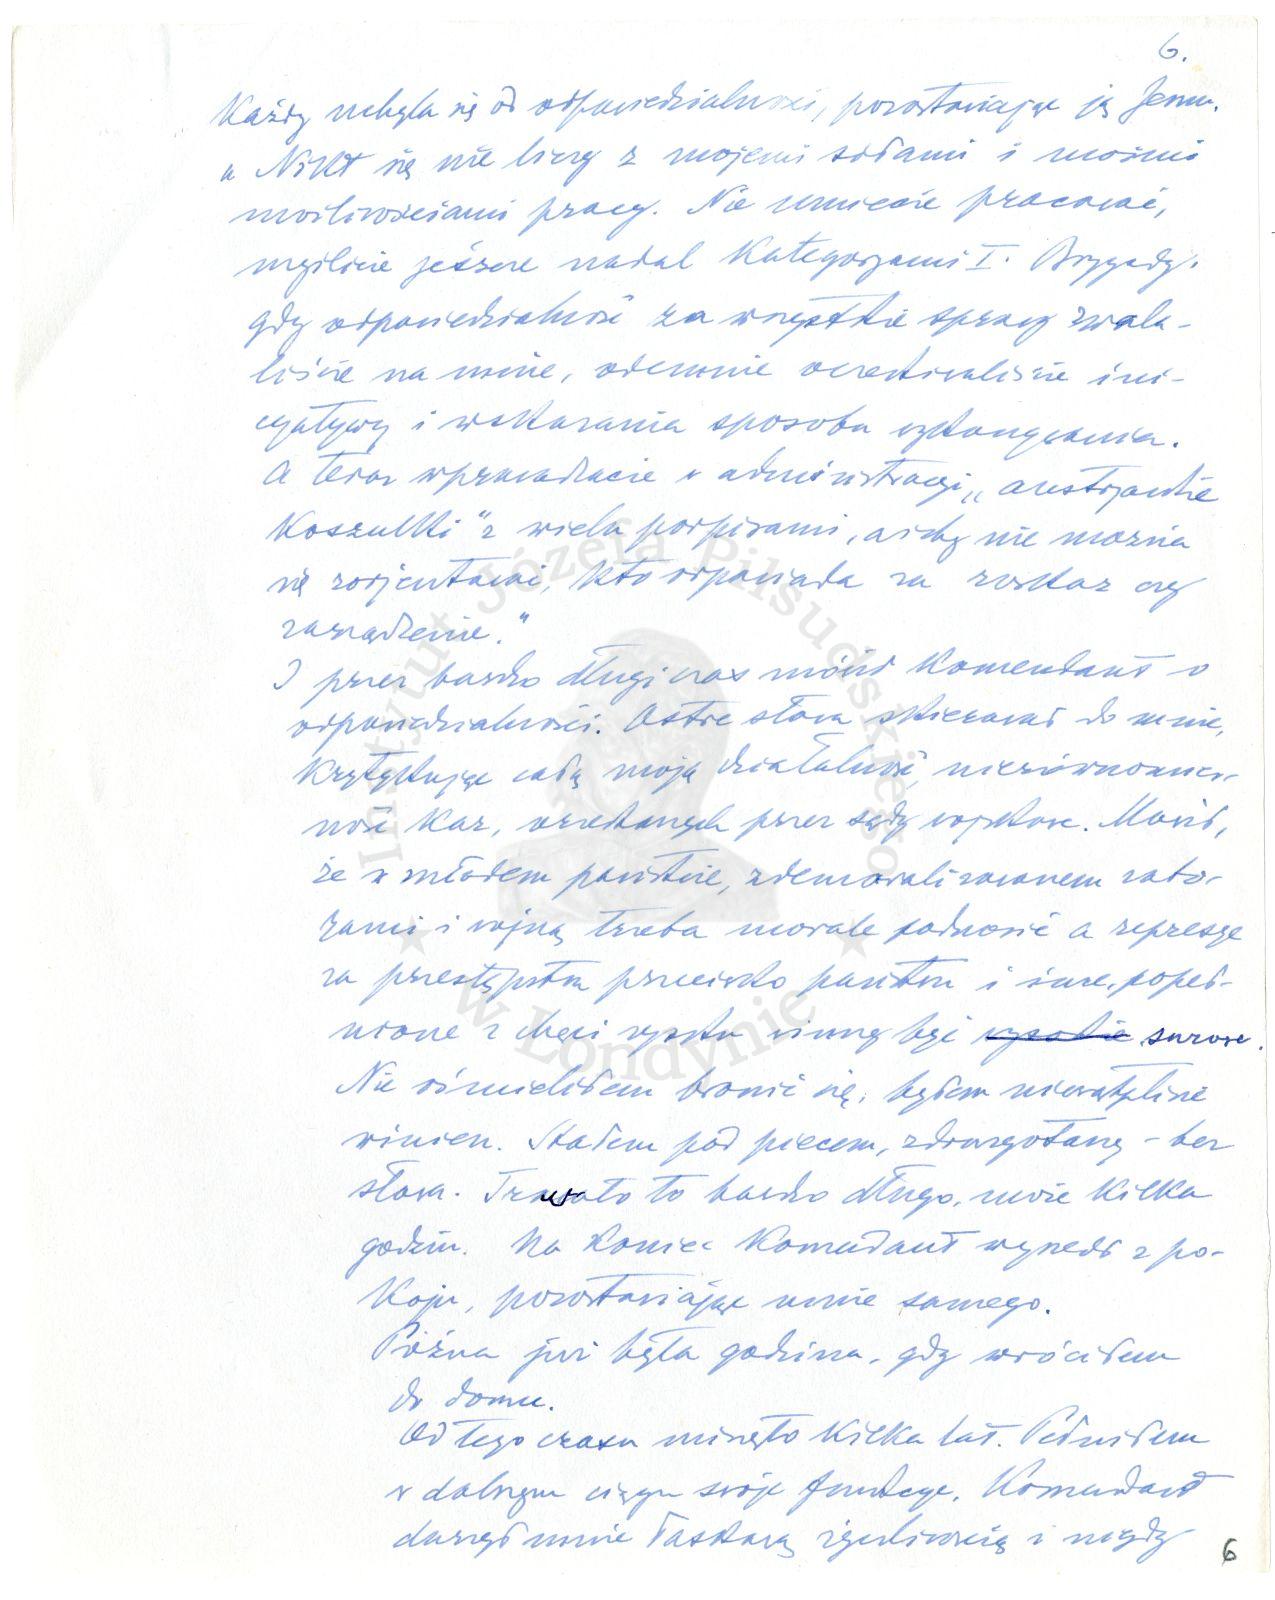 6.
Każdy uchyla się od odpowiedzialności, pozostawiając ją Jemu.
"Nikt się nie liczy z mojemi siłami i moimi
możliwościami pracy. Nie umiecie pracować,
myślicie jeszcze nadal kategorjami I. Brygady.
gdy odpowiedzialność za wszystkie sprawy zwala-
liście na mnie, odemnie oczekiwaliście ini-
cjatywy i wskazania sposobu wykonywania.
A teraz wprowadzacie w administracji „austrjackie
koszulki" z wielu podpisami, ażeby nie można
się zorjentować, kto odpowiada za rozkaz czy
zarządzenie."
I przez bardzo długi czas mówił Komendant o
odpowiedzialności. Ostre słowa skierował do mnie,
krytykując całą moją działalność, nierównomier-
ność kar, orzekanych przez sądy wojskowe. Mówił,
że w młodem państwie, zdemoralizowanem zabo-
rami i wojną trzeba morale podnosić a represje
za przestępstwa przeciwko państwu i inne, popeł-
nione z chęci zysku winny być wysokie surowe.
Nie ośmieliłem bronić się, byłem niewątpliwie
winien. Stałem pod piecem, zdruzgotany – bez
słowa. Trwało to bardzo długo, może kilka
godzin. Na koniec Komendant wyszedł z po-
koju, pozostawiając mnie samego.
Późna już była godzina, gdy wróciłem
do domu.
Od tego czasu minęło kilka lat. Pełniłem
w dalszym ciągu swoje funkcje. Komendant
darzył mnie łaskawą życzliwością i nigdy
6
Instytut Józefa Piłsudskiego
w Londynie